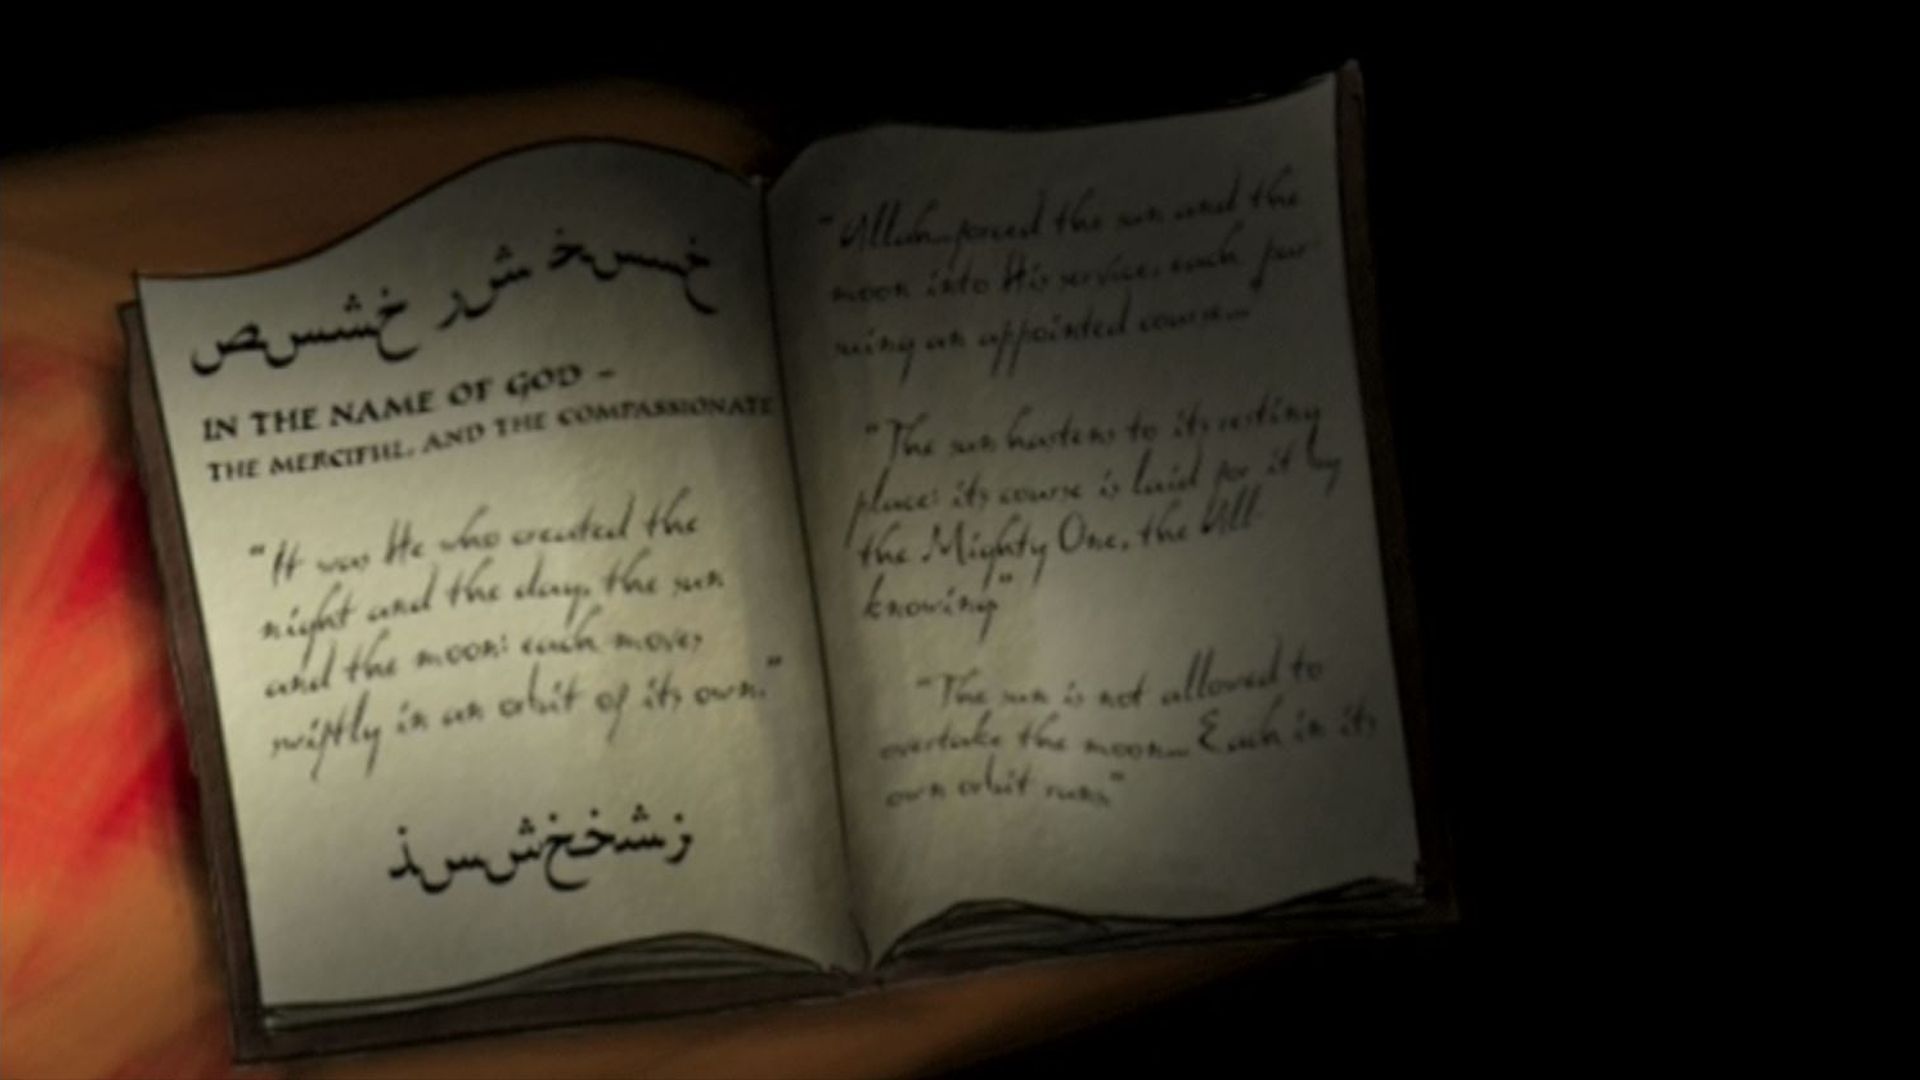 خسسخ شر خشسص
IN THE NAME OF GOD –
THE MERCIFUL, AND THE COMPASSIONATE
"It was He who created the
night and the day, the sun
and the moon: each moves
swiftly in an orbit of its own."
زشخخشسذ
"Allah...forced the sun and the
moon into His service, each pur
suing an appointed course..."
"The sun hastens to its resting
place: its course is laid for it by
the Mighty One, the All
knowing"
"The sun is not allowed to
overtake the moon... Each in its
own orbit runs"